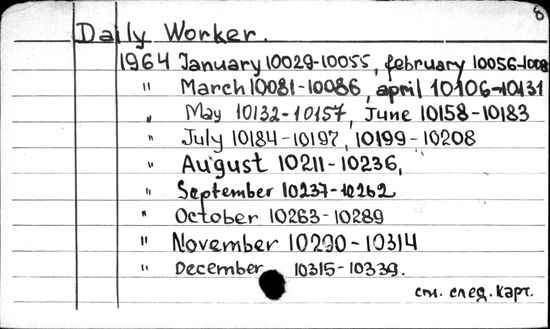 8
Daily Worker.
1964 January 10029-10055, february 10056-10080
" March 10081-10086, april 10106-10131
" May 10132-10157, June 10158-10183
" July 10184-10197, 10199-10208
" August 10211-10236,
" September 10237-10262
" October 10263-10289
" November 10290-10314
" December 10315-10339.
см. след. карт.